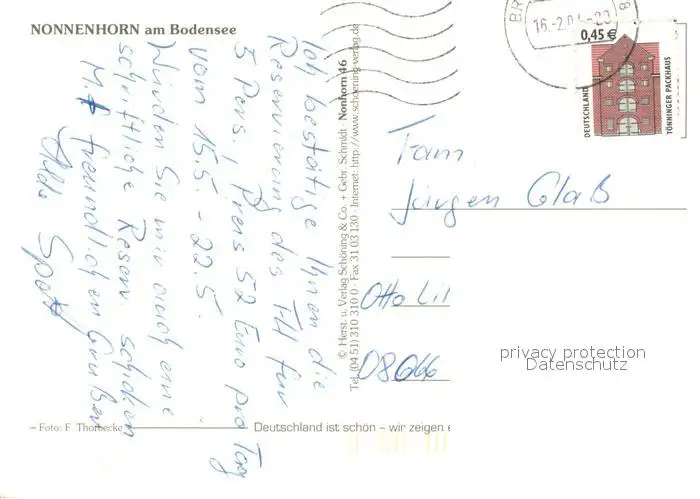 NONNENHORN am Bodensee
Ich bestätige Ihnen die
Reservierung des FH für
3 Pers., Preis 52 Euro pro Tag
vom 15.5. - 22.5.
Würden Sie mir auch eine
schriftliche Reserv schicken
M.f freundlichen Grüßen
Hilde
– Foto: F. Thorbecke
© Herst. u. Verlag Schöning & Co. + Gebr. Schmidt Nonhorn 46
Tel. (04 51) 310 310 0 · Fax 31 03 130 · Internet: http://www.schoening-verlag.de
Deutschland ist schön – wir zeigen e
0,45 €
DEUTSCHLAND
TÖNNINGER PACKHAUS
BR
16.-2.0
8
Fam.
Jürgen Glaß
Otto Lil
08066
privacy protection
Datenschutz